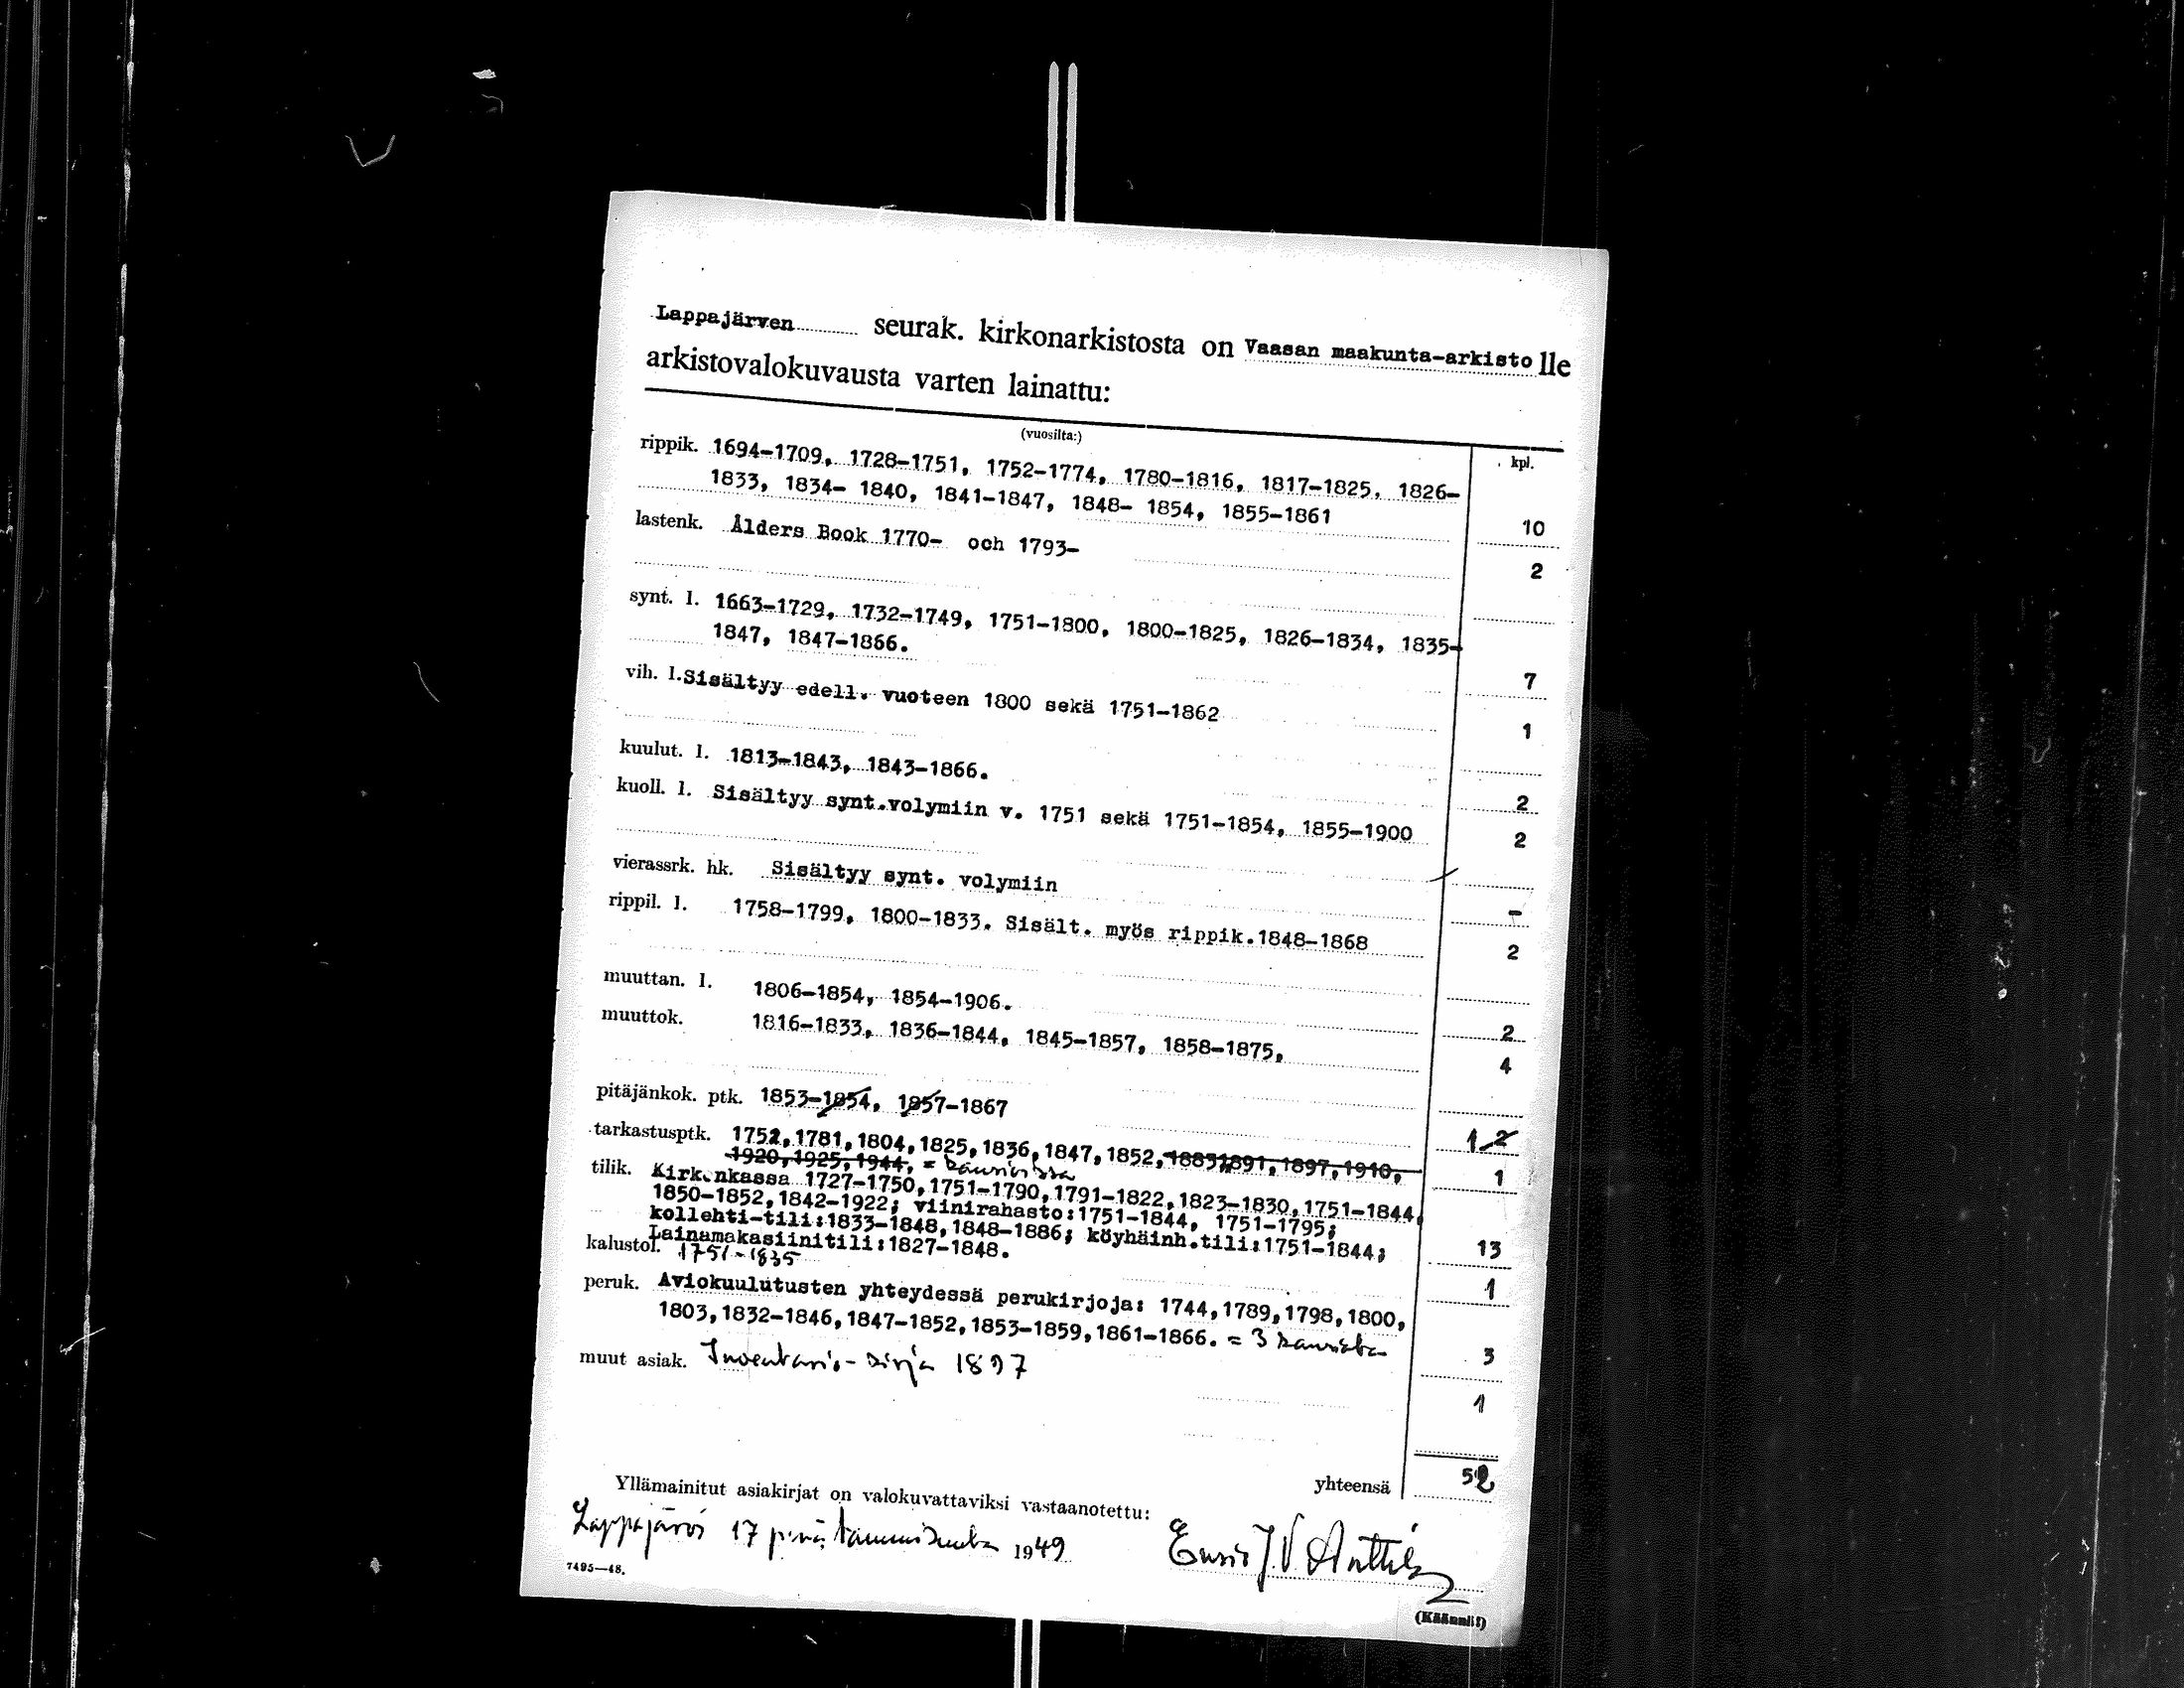 Lappajärven seurak. kirkonarkistosta on Vaasan maakunta-arkisto lle
arkistovalokuvausta varten lainattu:
(vuosilta:) kpl.
rippik. 1694-1709, 1728-1751, 1752-1774, 1780-1816, 1817-1825, 1826-
1833, 1834- 1840, 1841-1847, 1848- 1854, 1855-1861 10
lastenk. Ålders Book 1770- och 1793- 2
synt. l. 1663-1729, 1732-1749, 1751-1800, 1800-1825, 1826-1834, 1835-
1847, 1847-1866. 7
vih. l. Sisältyy edell. vuoteen 1800 sekä 1751-1862 1
kuulut. l. 1813-1843, 1843-1866. 2
kuoll. l. Sisältyy synt.volymiin v. 1751 sekä 1751-1854, 1855-1900 2
vierassrk. hk. Sisältyy synt. volymiin -
rippil. l. 1758-1799, 1800-1833. Sisält. myös rippik.1848-1868 2
muuttan. l. 1806-1854, 1854-1906. 2
muuttok. 1816-1833, 1836-1844, 1845-1857, 1858-1875, 4
pitäjänkok. ptk. 1853-1854, 1857-1867 1 2
tarkastusptk. 1752,1781,1804,1825,1836,1847,1852,1885,1891,1897,1910, 1
1920,1925,1944, =
tilik. Kirkonkassa 1727-1750,1751-1790,1791-1822,1823-1830,1751-1844,
1850-1852,1842-1922; viinirahasto:1751-1844, 1751-1795;
kollehti-tili:1833-1848,1848-1886; köyhäinh.tili:1751-1844; 13
Lainamakasiinitili:1827-1848.
kalustol. 1751-1835 1
peruk. Aviokuulutusten yhteydessä perukirjoja: 1744,1789,1798,1800,
1803,1832-1846,1847-1852,1853-1859,1861-1866. = 3 3
muut asiak. Inventario-kirja 1897 1
yhteensä 52
Yllämainitut asiakirjat on valokuvattaviksi vastaanotettu:
Lappajärvi 17 p:nä tammikuuta 1949 J.V. Anttila
7495—48. (Käännä!)